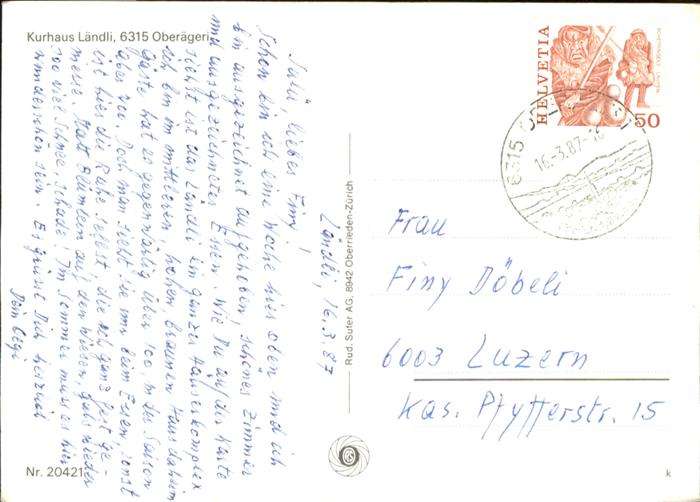 Kurhaus Ländli, 6315 Oberägeri
HELVETIA
50
6315
16.-3.87-
Ländli, 16.3.87
Salü liebes Finy!
Schon bin ich eine Woche hier oben und ich
bin ausgezeichnet aufgehoben, schönes Zimmer
und ausgezeichnetes Essen. Wie Du auf der Karte
siehst ist das Ländli ein ganzer Häuserkomplex
ich bin im mittleren hohen, braunen Haus daheim
Gäste hat es gegenwärtig über 100, in der Saison
aber 200. Doch man sieht sie nur beim Essen, sonst
ist hier die Ruhe selbst, die ich ganz fest ge-
niesse. Statt Blümlein auf den Wiesen, gabs wieder
so viel Schnee, schade! Im Sommer muss es hier
wunderschön sein. Es grüsst Dich herzlich
Dein
Frau
Finy Döbeli
6003 Luzern
Kas. Pfyfferstr. 15
Rud. Suter AG, 8942 Oberrieden-Zürich
Nr. 20421
k